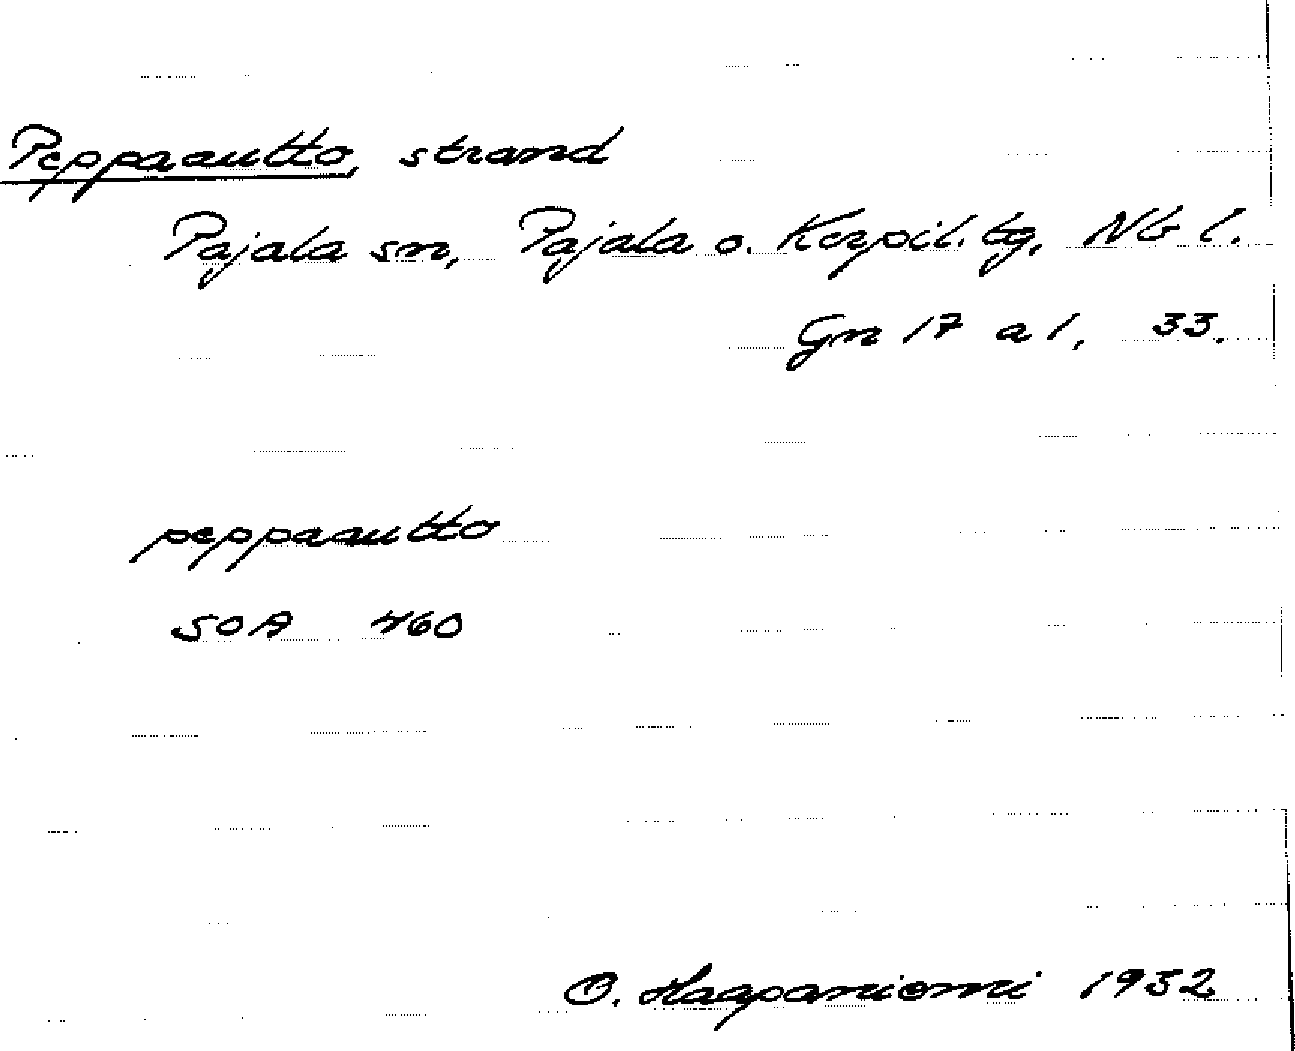 Peppaautto, strand
Pajala sn, Pajala o. Korpil. tg, Nb l.
Gn 17 a 1, 33.
peppaautto
SOA 460
O. Haapaniemi 1932